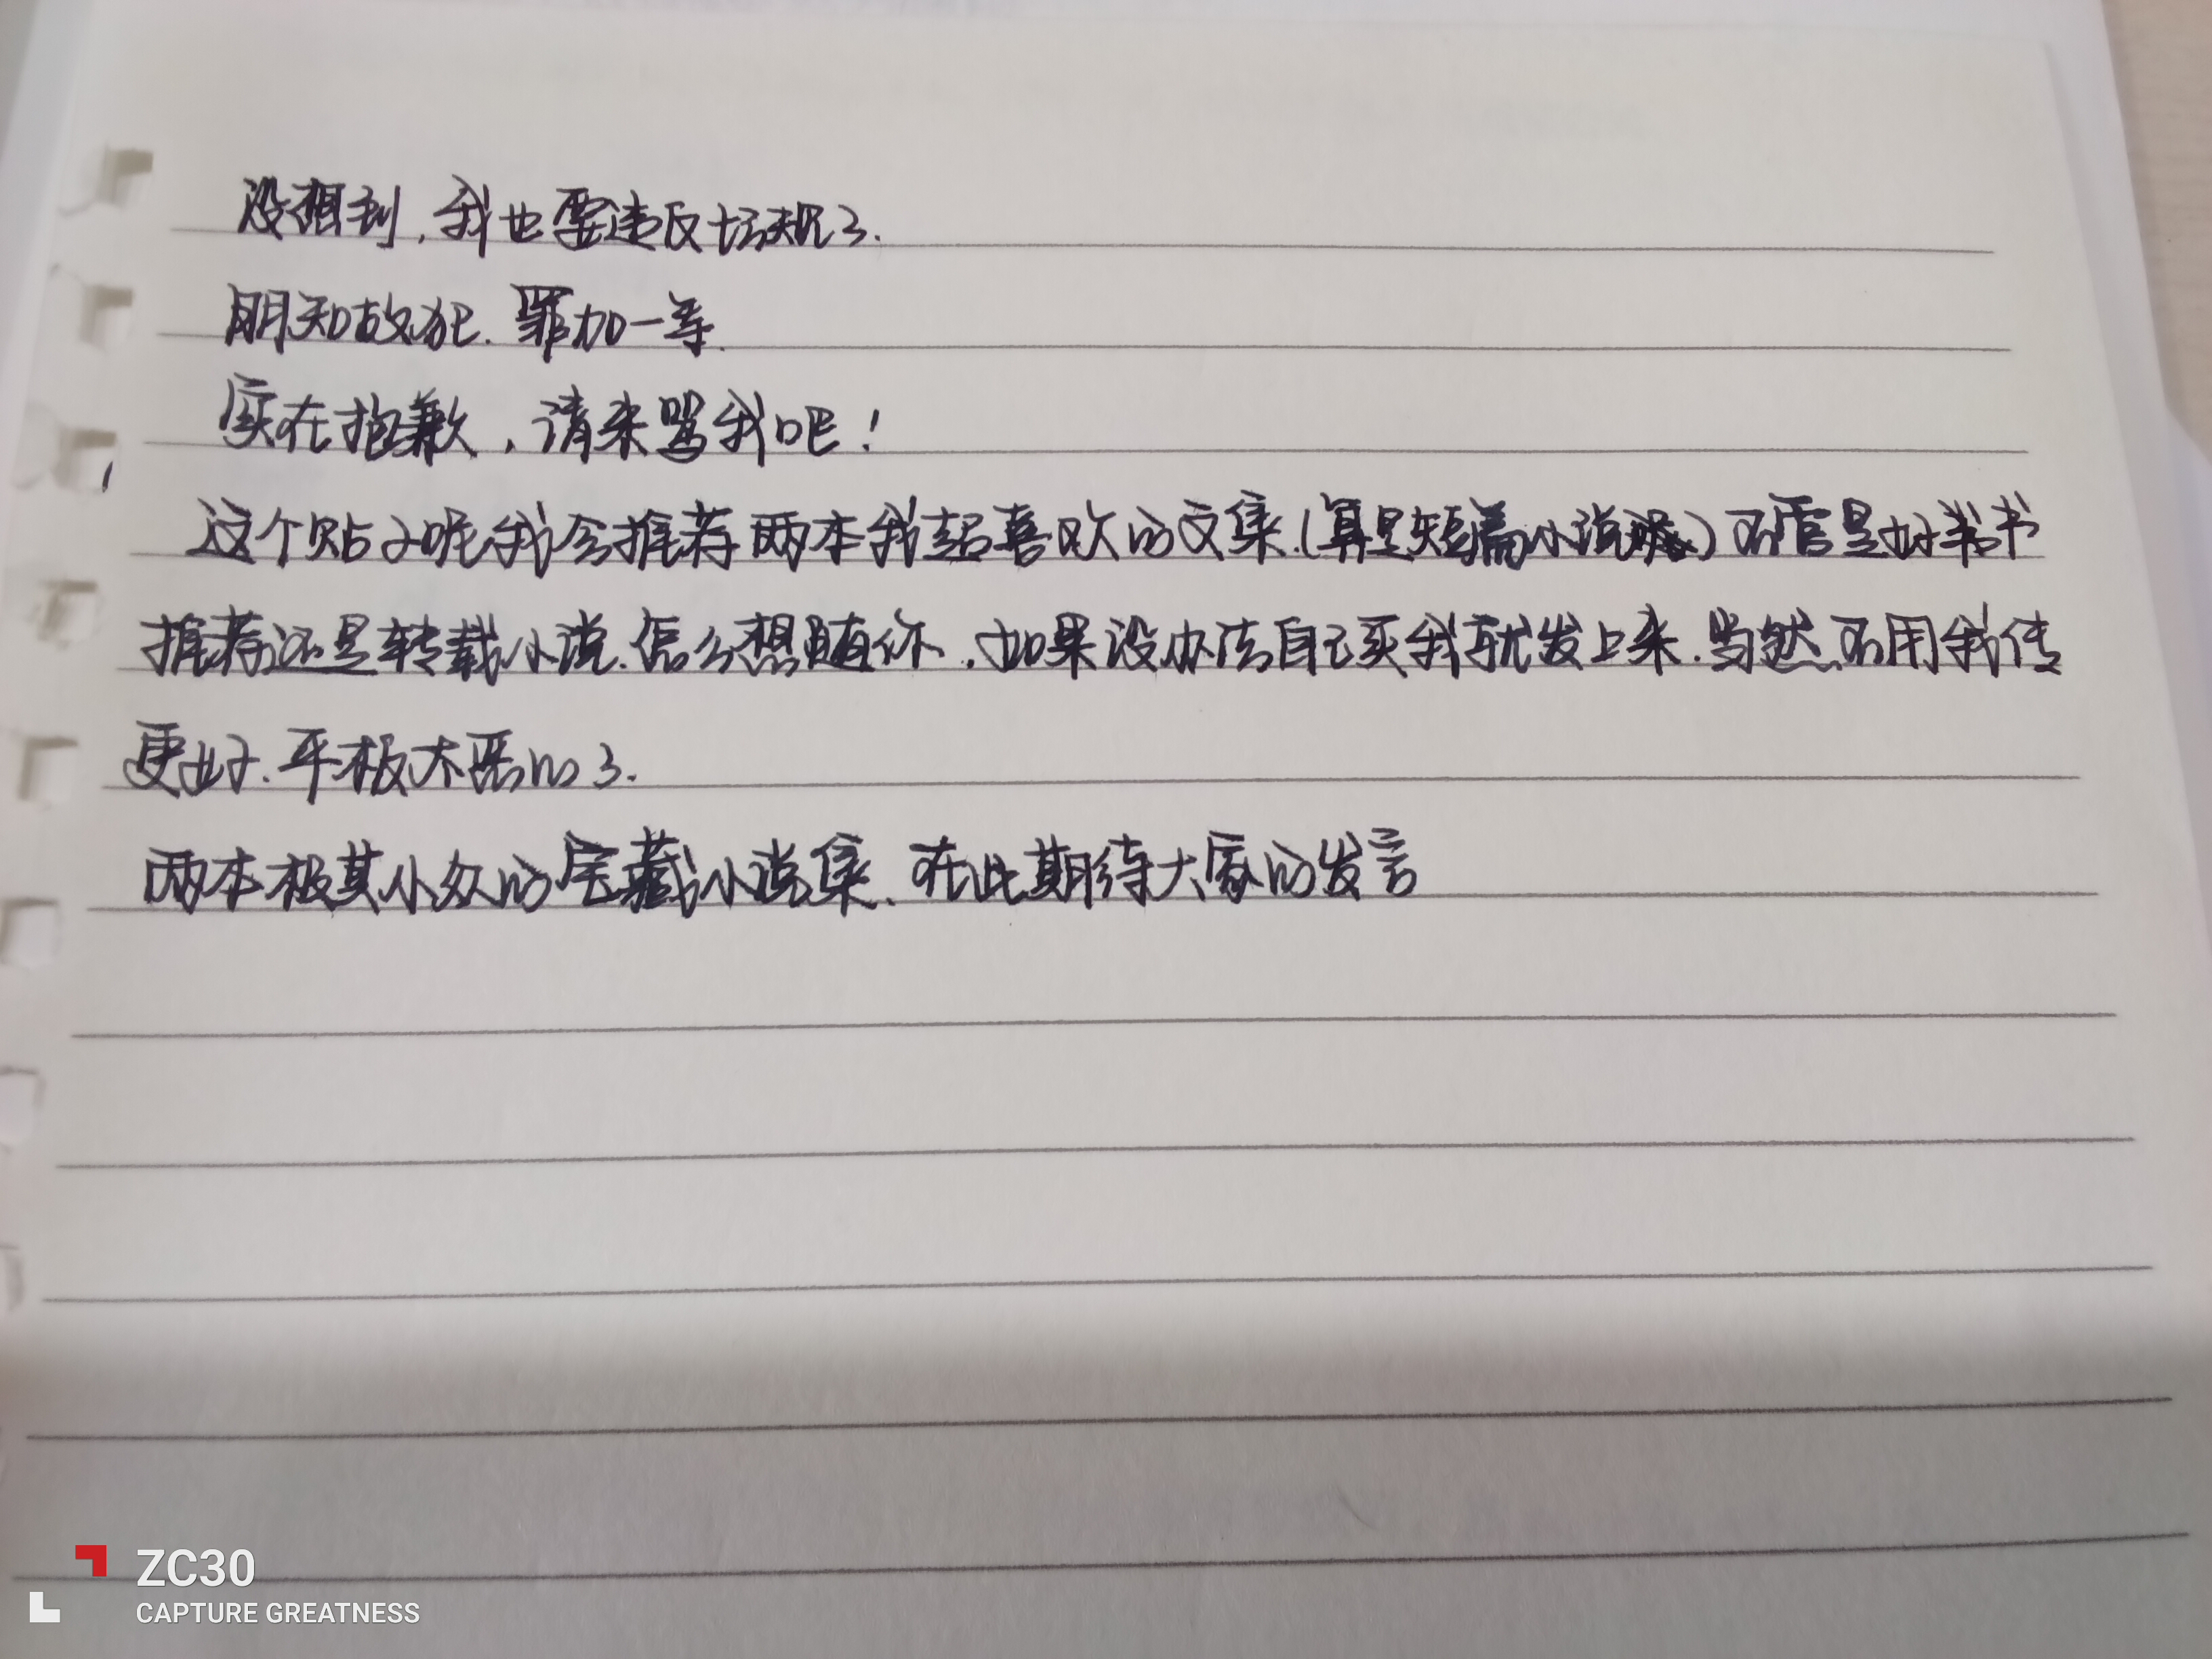 没想到，我也要违反场规了.
明知故犯.罪加一等.
实在抱歉，请来骂我吧！
这个贴子呢我会推荐两本我超喜欢的文集.(算是短篇小说)不管是好书
推荐还是转载小说.怎么想随你.如果没办法自己买我就发上来.当然.不用我传
更好.平板木恶的了.
两本极其小众的宝藏小说集.在此期待大家的发言
ZC30
CAPTURE GREATNESS